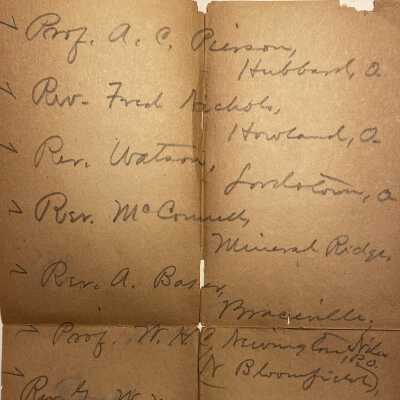 ✓ Prof. A. C. Pierson,
Hubbard, O.
✓ Rev. Fred Nichols,
Howland, O.
✓ Rev. Watson,
Lordstown, O.
✓ Rev. McConnell,
Mineral Ridge,
✓ Rev. A. Baker,
Braceville.
✓ Prof. W. H. C. Newington, Niles
P.O.
(N Bloomfield),
✓ Rev. G. W.